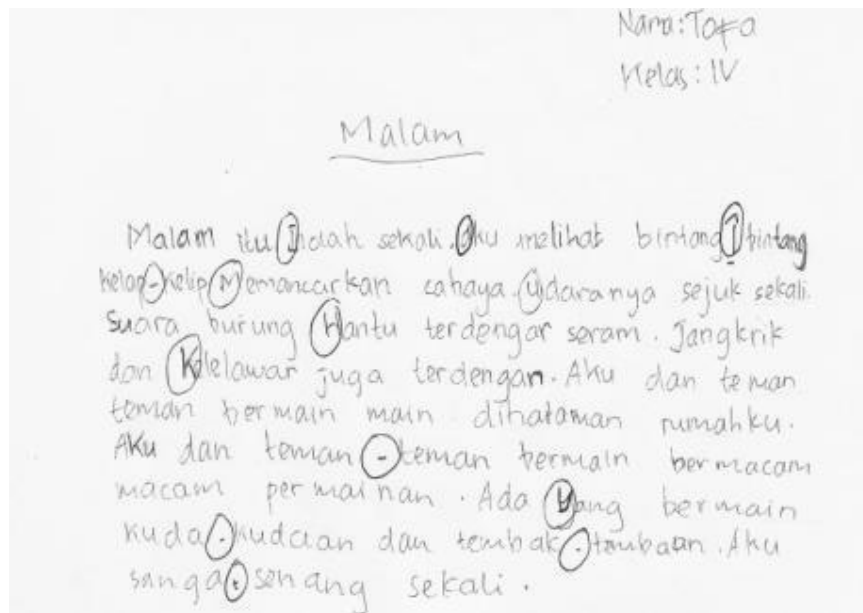 Nama: Tofa
Kelas: IV
Malam
Malam itu Indah sekali. Aku melihat bintang bintang
kelap-kelip Memancarkan cahaya. Udaranya sejuk sekali.
Suara burung Hantu terdengar seram. Jangkrik
dan Kelelawar juga terdengan. Aku dan teman
teman bermain main dihalaman rumahku.
AKu dan teman-teman bermain bermacam
macam permainan. Ada Yang bermain
kuda-kudaan dan tembak-tembaan. Aku
sangat senang sekali.